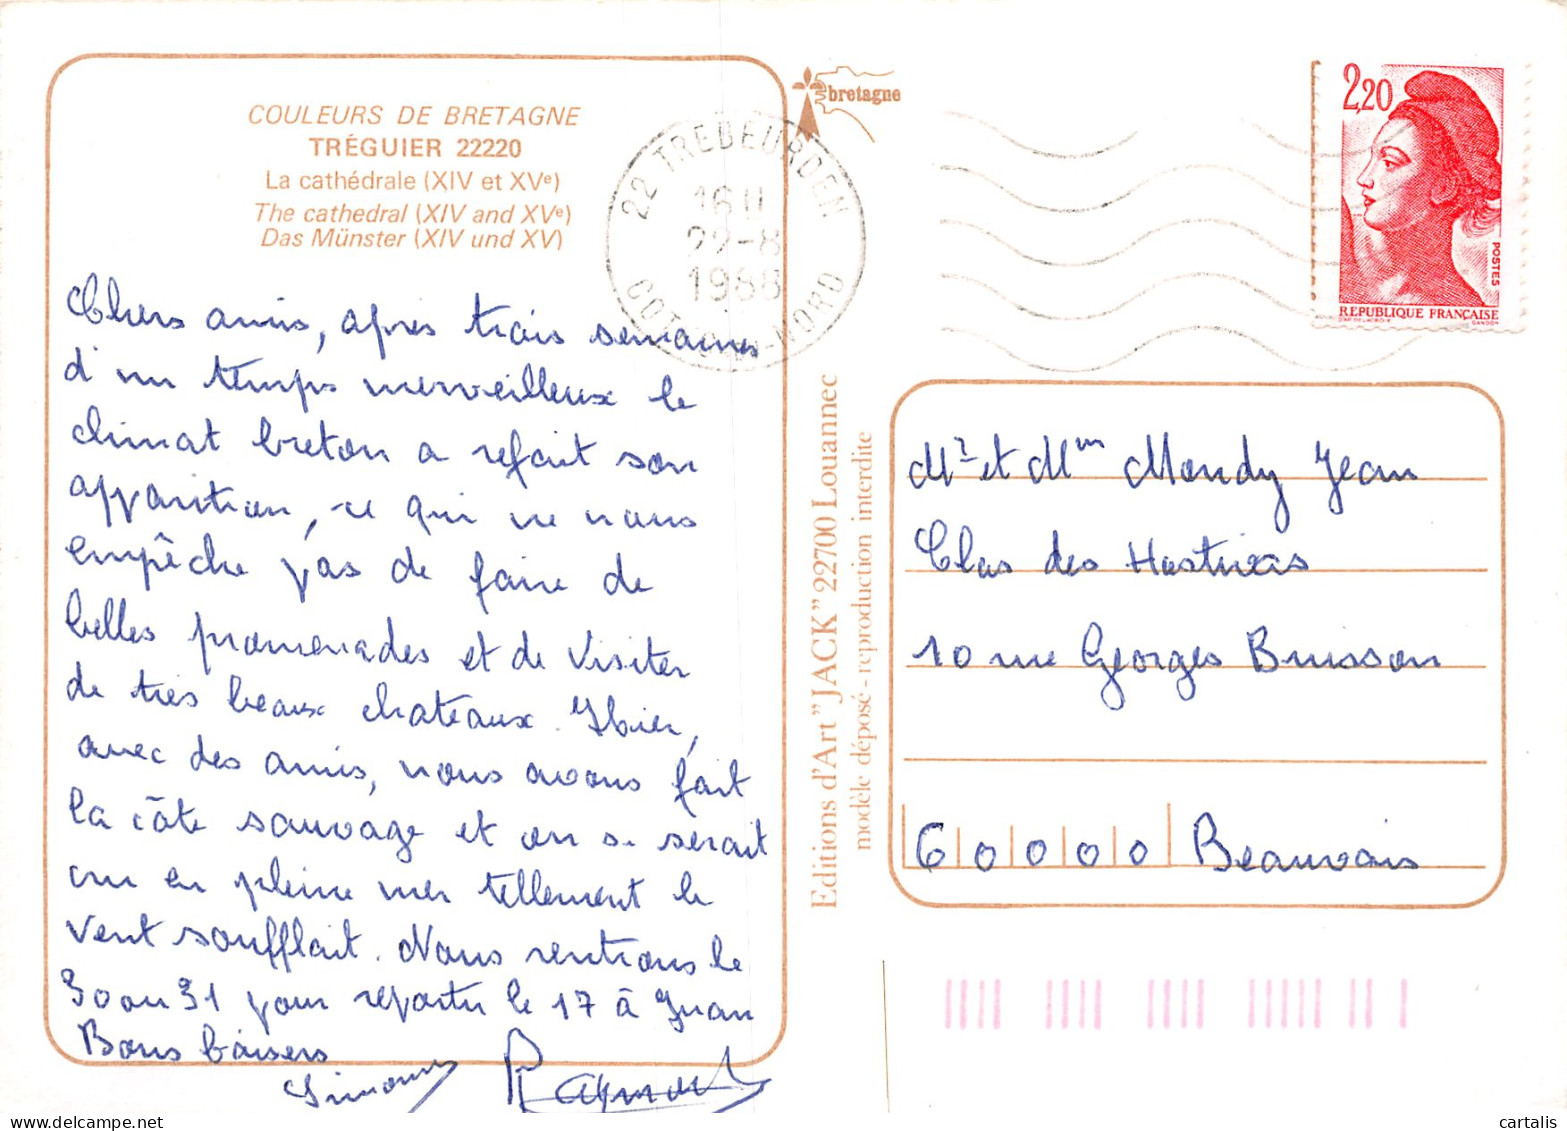 COULEURS DE BRETAGNE
TRÉGUIER 22220
La cathédrale (XIV et XVe)
The cathedral (XIV and XVe)
Das Münster (XIV und XV)
Chers amis, après trois semaines
d'un temps merveilleux le
climat breton a refait son
apparition, ce qui ne nous
empêche pas de faire de
belles promenades et de visiter
de très beaux chateaux. Hier,
avec des amis, nous avons fait
la côte sauvage et on se serait
cru en pleine mer tellement le
vent soufflait. Nous rentrons le
30 ou 31 pour repartir le 17 à
Bons baisers
Simone Raymond
bretagne
22 TREBEURDEN
16 H
22-8
1988
COTES-DU-NORD
2,20
POSTES
REPUBLIQUE FRANÇAISE
D'AP. DELACROIX GANDON
Editions d'Art "JACK" 22700 Louannec
modèle déposé - reproduction interdite
Mr et Mm Mondy Jean
Clos des
10 rue Georges Buisson
60000 Beauvais
cartalis